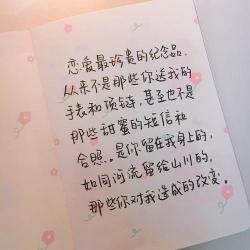 恋爱最珍贵的纪念品,
从来不是那些你送我的
手表和项链,甚至也不是
那些甜蜜的短信和
合照。是你留在我身上的,
如同河流留给山川的。
那些你对我造成的改变。